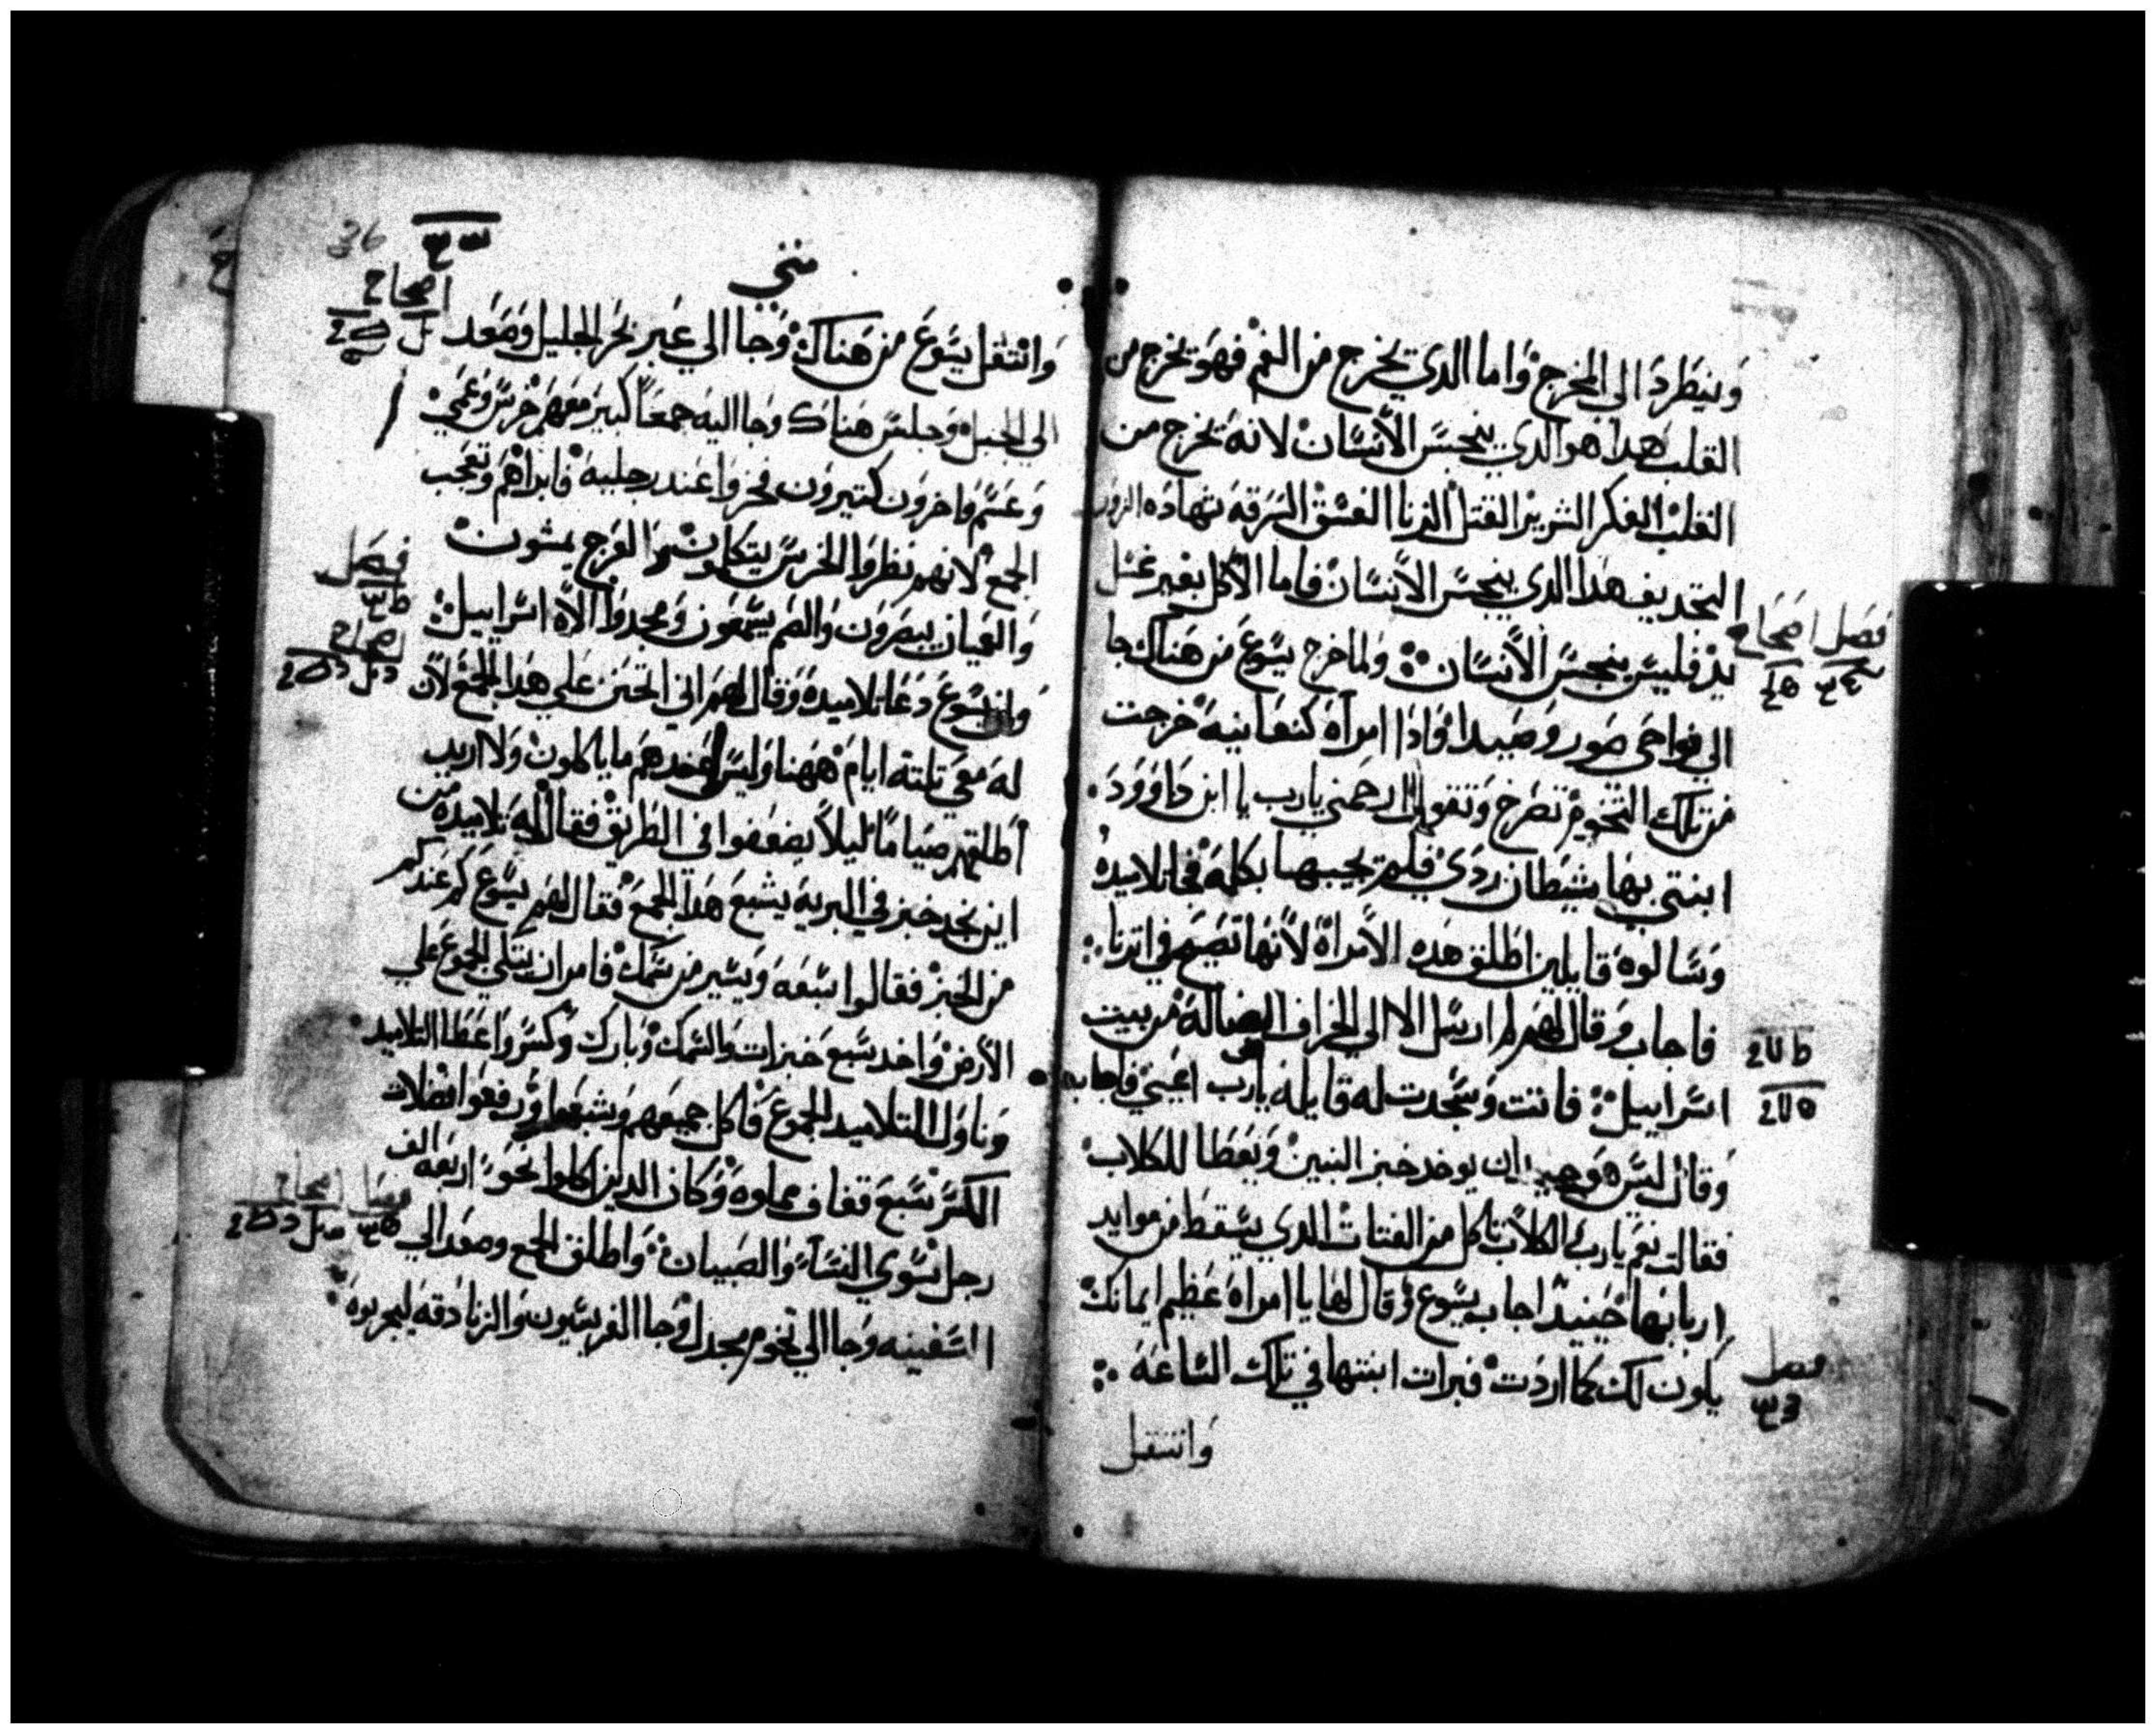 وينطرد الى المخرج واما الدي يخرج من الفم فهو يخرج من
القلب هدا هو الدي ينجس الانسان لانه يخرج من
القلب الفكر الشرير القتل الزنا الفسق السرقه شهاده الزور
التجديف هدا الدي ينجس الانسان فاما الاكل بغير غسل
يد فليس ينجس الانسان ولما خرج يسوع من هناك جا
فصل اصحاح
الى نواحي صور وصيدا وادا امراه كنعانيه خرجت
من تلك التخوم تصرخ وتقول ارحمني يارب يا ابن داوود
ابنتي بها شيطان ردي فلم يجيبها بكلمه فجا تلاميده
وسالوه قايلين اطلق هده الامراه لانها تصيح في اترنا
فاجاب وقال لهم لم ارسل الا الى الخراف الضاله من بيت
اسراييل فاتت وسجدت له قايله يارب اعيني فاجابها
وقال ليس هو جيد ان يوخد خبز البنين ويعطا للكلاب
فقالت نعم يارب الكلاب تاكل من الفتات الدي يسقط من موايد
اربابها حينيد اجاب يسوع وقال لها يا امراه عظيم ايمانك
يكون لك كما اردت فبرات ابنتها في تلك الساعه
فصل
وانتقل
36
متي
اصحاح
وانتقل يسوع من هناك وجا الي عبر بحر الجليل وصعد
الي الجبل وجلس هناك وجا اليه جمعا كبير معهم خرس وعمي
وعسم واخرون كتيرون فخروا عند رجليه فابراهم وتعجب
الجمع لانهم نظروا الخرس يتكلمون والعرج يمشون
فصل
والعميان يبصرون والصم يسمعون ومجدوا الاه اسراييل
اصحاح
وان يسوع دعا تلاميده وقال لهم اني اتحنن علي هدا الجمع لان
له معي تلتة ايام ههنا وليس عندهم ما ياكلون ولا اريد
اطلقهم صياما ليلا يضعفوا في الطريق فقال له تلاميده من
اين نجد خبز في البريه يشبع هدا الجمع فقال لهم يسوع كم عندكم
من الخبز فقالوا سبعه ويسير من سمك فامر ان يتكي الجموع علي
الارض واخد سبع خبزات والسمك وبارك وكسر واعطا التلاميد
وناول التلاميد الجموع فاكل جميعهم وشبعوا ورفعوا فضلات
الكسر سبع قفاف مملوه وكان الدين اكلوا نحو اربعة الف
رجل سوي النسا والصبيان واطلق الجمع وصعد الي
فصل اصحاح
السفينه وجا الي تخوم مجدل وجا الفريسيون والزنادقه ليجربوه